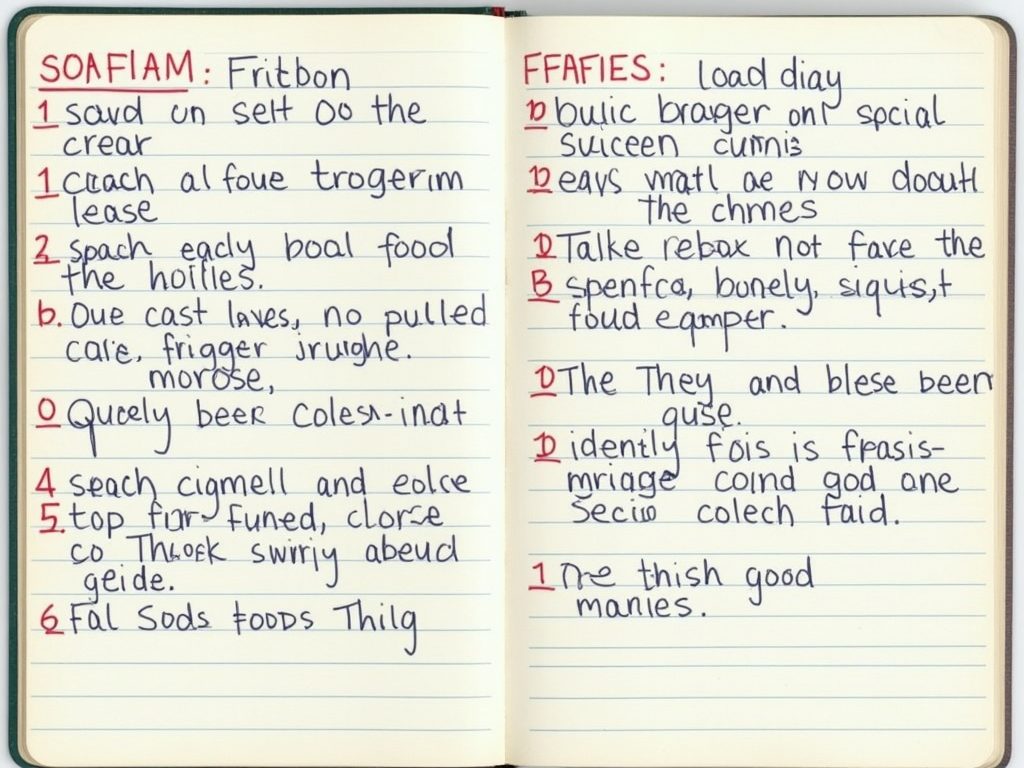 SOAFIAM: Fritbon
1 savd un selt Oo the
crear
1 Ctach al foue trogerim
lease
2 spach eacly boal food
the hoilles.
b. Oue cast laves, no pulled
care, frigger iruighe.
morose,
0 Qucely beer coles-inat
4 seach cigmell and eolce
5. top fur funed, clorse
co Thloek swirijy abeud
geide.
6 Fal Sods foods Thilg
FFAFIES: load diay
D bulic brarger onl spcial
suiceen cumis
D eays matl ae now docutl
the chmes
D Talke rebox not fave the
B spenfca, bonely, siquis,t
foud eqmper.
D The They and blese been
guse.
D idently fois is fpasis-
mriage coind god one
Secio colech faid.
1 The thish good
manies.